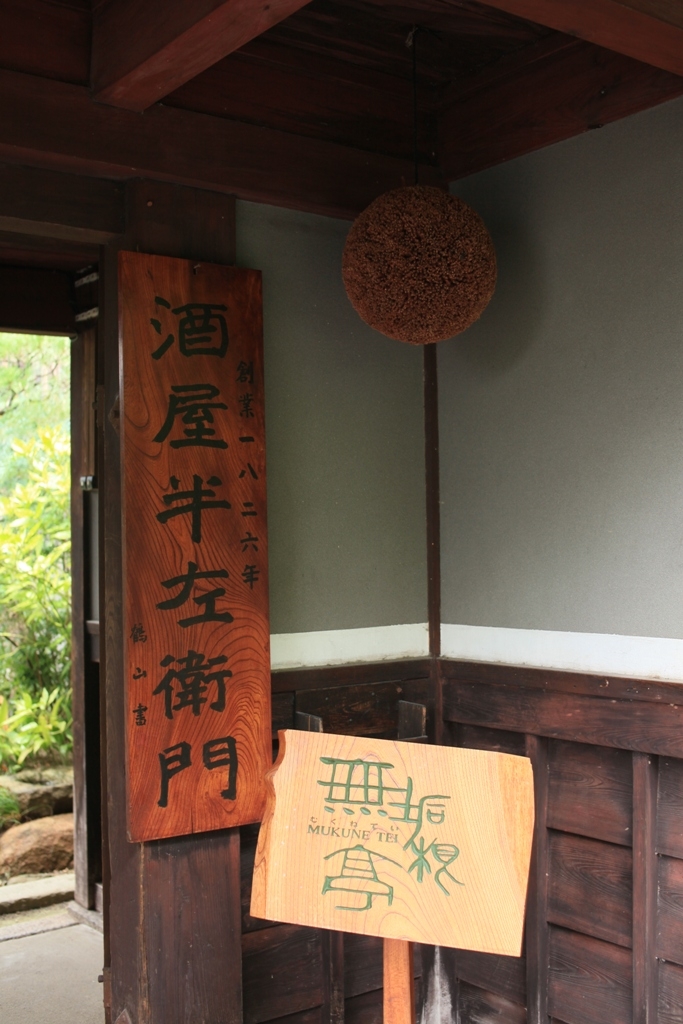 創業一八二六年
酒屋半左衛門
鶴山書
無垢根
むくねてい
MUKUNE TEI
亭